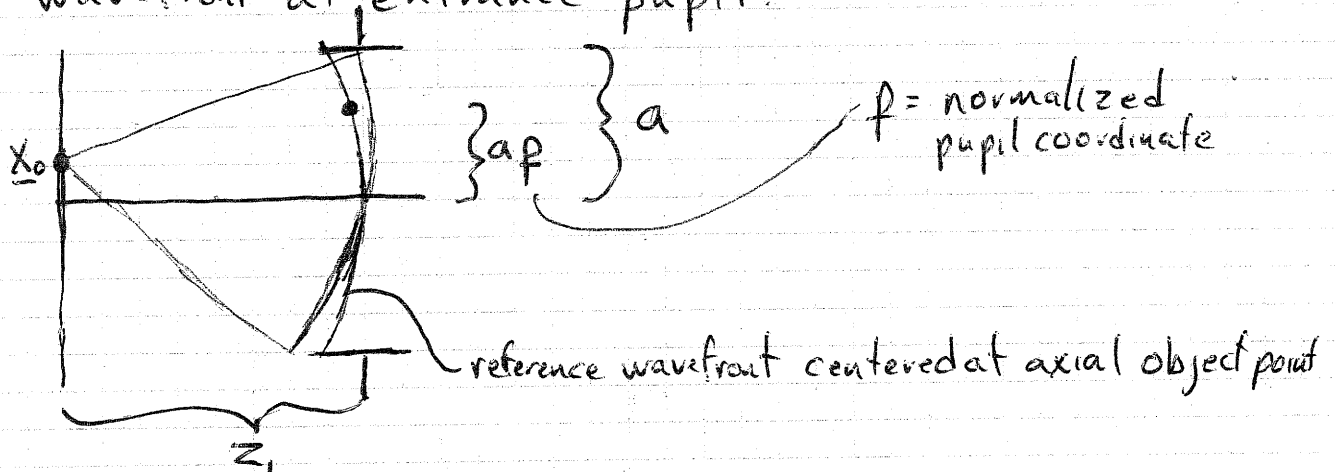 wavefront at entrance pupil.
} a
ρ = normalized
pupil coordinate
} aρ
x₀
reference wavefront centered at axial object point
z₁